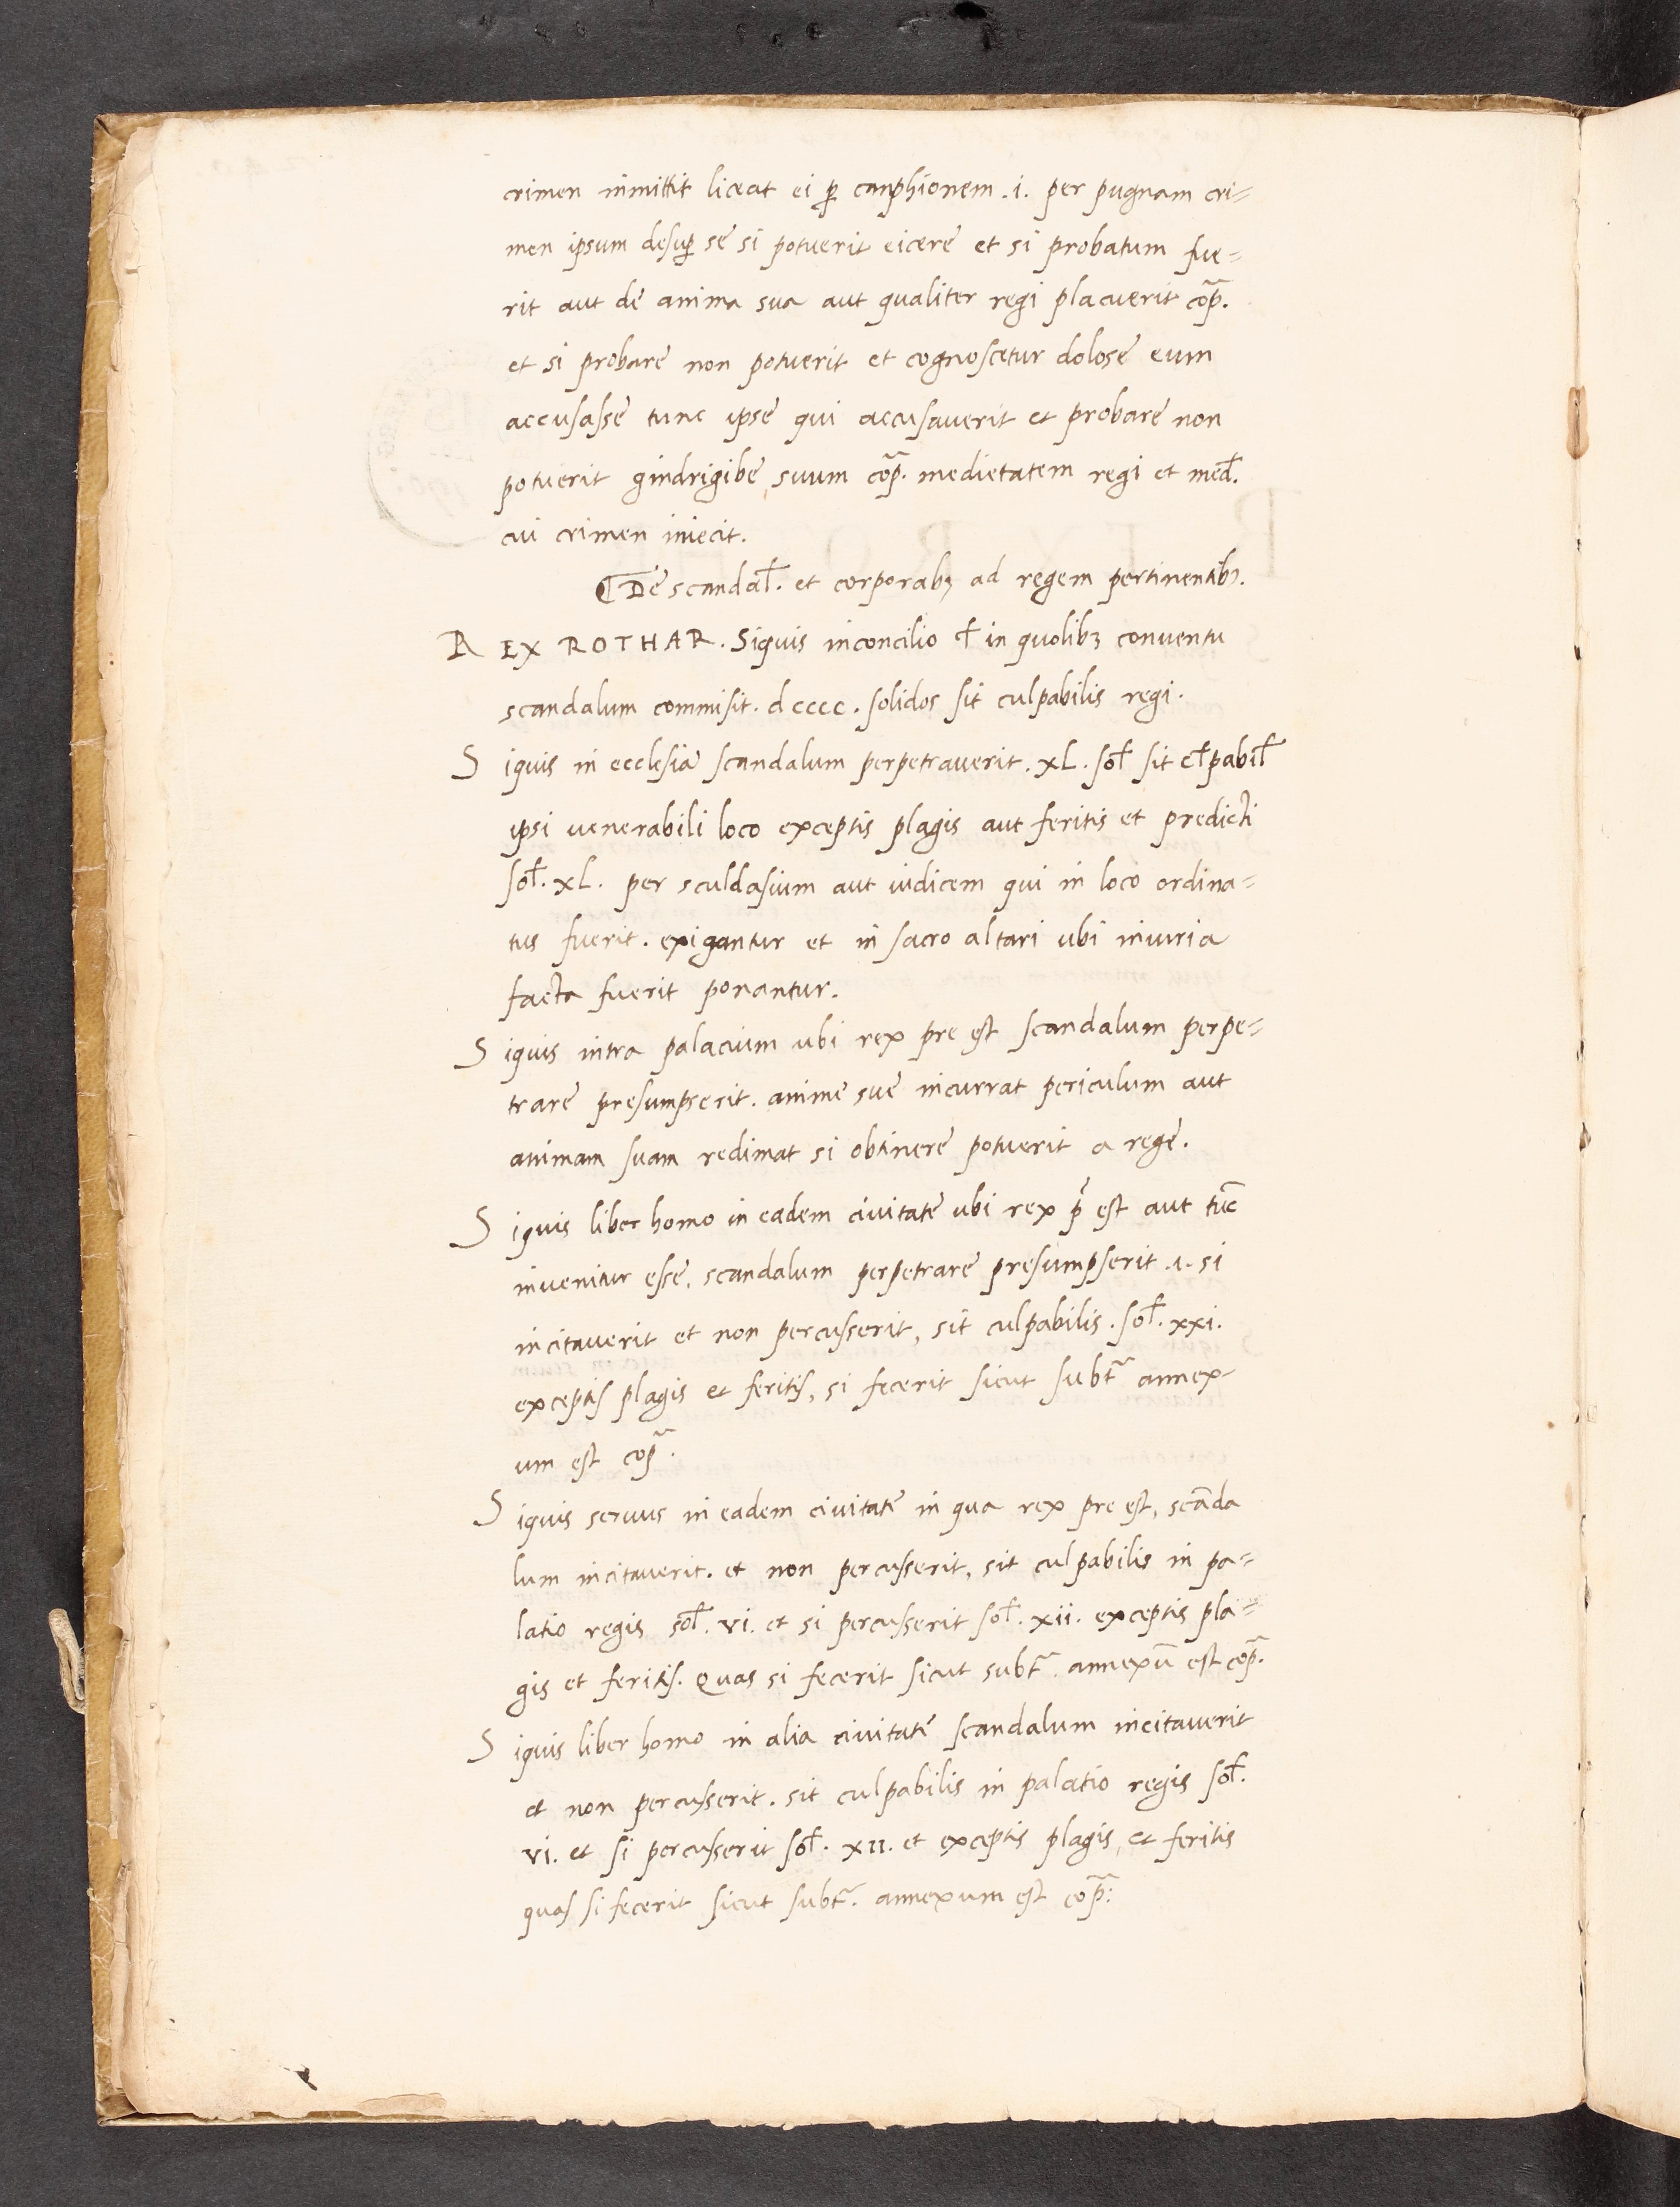 crimen inmittit liceat ei ꝑ canphionem .i. per pugnam cri=
men ipsum desuꝑ se si potuerit eicere et si probatum fue=
rit aut de anima sua aut qualiter regi placuerit cop̄.
et si probare non potuerit et cognoscetur dolose eum
accusasse tunc ipse qui accusaverit et probare non
potuerit gindrigibe suum cop̄. medietatem regi et med̄.
cui crimen iniecit.
⸿De scandał. et corporabꝫ ad regem pertinentibꝫ.
REX ROTHAR. Siquis inconcilio ł in quolibꝫ conventu
scandalum commisit. dcccc. solidos sit culpabilis regi.
Siquis in ecclesia scandalum perpetraverit. XL. soł sit cłpabił
ipsi venerabili loco exceptis plagis aut feritis et predicti
soł. XL. per sculdasium aut iudicem qui in loco ordina=
tus fuerit. exigantur et in sacro altari ubi iniuria
facta fuerit ponantur.
Siquis intra palacium ubi rex pre est scandalum perpe=
trare presumpserit. anime sue incurrat periculum aut
animam suam redimat si obtinere potuerit a rege.
Siquis liber homo in eadem civitate ubi rex p̄ est aut tūc
invenitur esse, scandalum perpetrare presumpserit .i. si
incitaverit et non percusserit, sit culpabilis. soł. xxi.
exceptis plagis et feritis, si fecerit sicut subt̄ annex
um est cop̄.
Siquis servus in eadem civitate in qua rex pre est, scāda
lum incitaverit. et non percusserit, sit culpabilis in pa=
latio regis soł. vi. et si percusserit soł. xii. exceptis pla=
gis et feritis. Quas si fecerit sicut subt̄. annexū est cop̄.
Siquis liber homo in alia civitate scandalum incitaverit
et non percusserit. sit culpabilis in palatio regis soł.
vi. et si percusserit soł. xii. et exceptis plagis, et feritis
quas si fecerit sicut subt̄. annexum est cop̄: